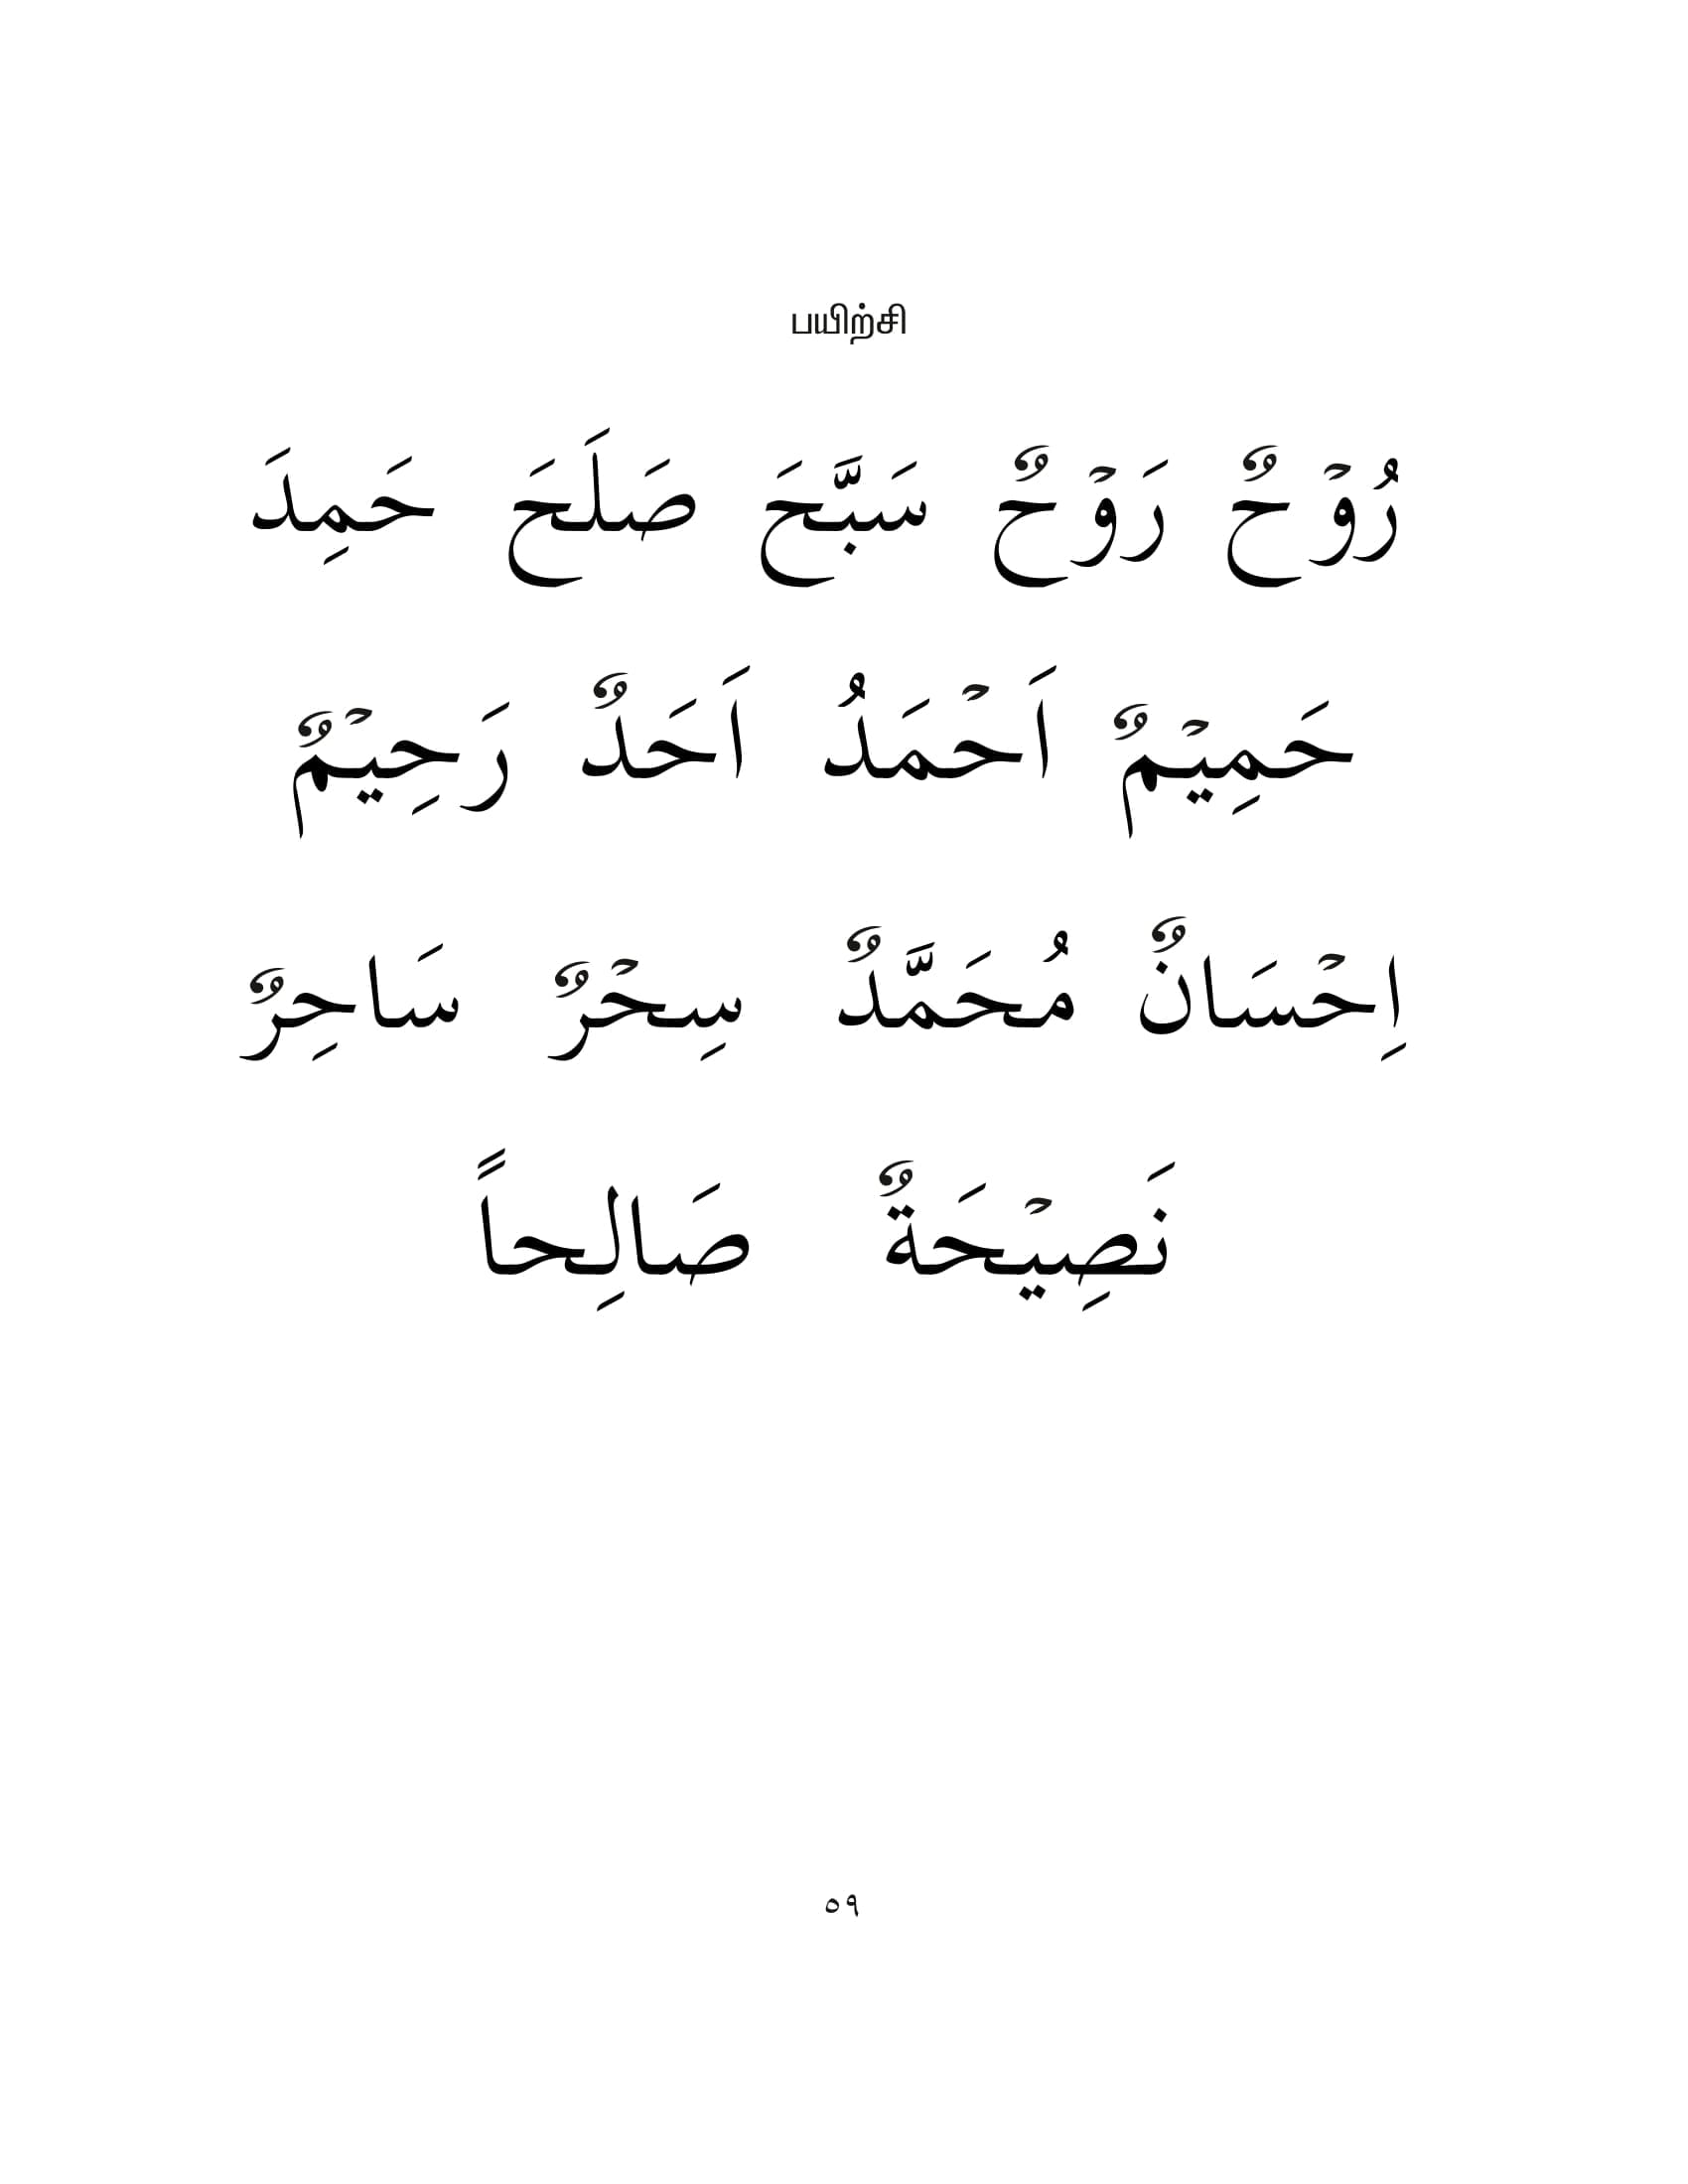 பயிற்சி
رُوْحٌ رَوْحٌ سَبَّحَ صَلَحَ حَمِدَ
حَمِيْمٌ اَحْمَدُ اَحَدٌ رَحِيْمٌ
اِحْسَانٌ مُحَمَّدٌ سِحْرٌ سَاحِرٌ
نَصِيْحَةٌ صَالِحاً
٥٩